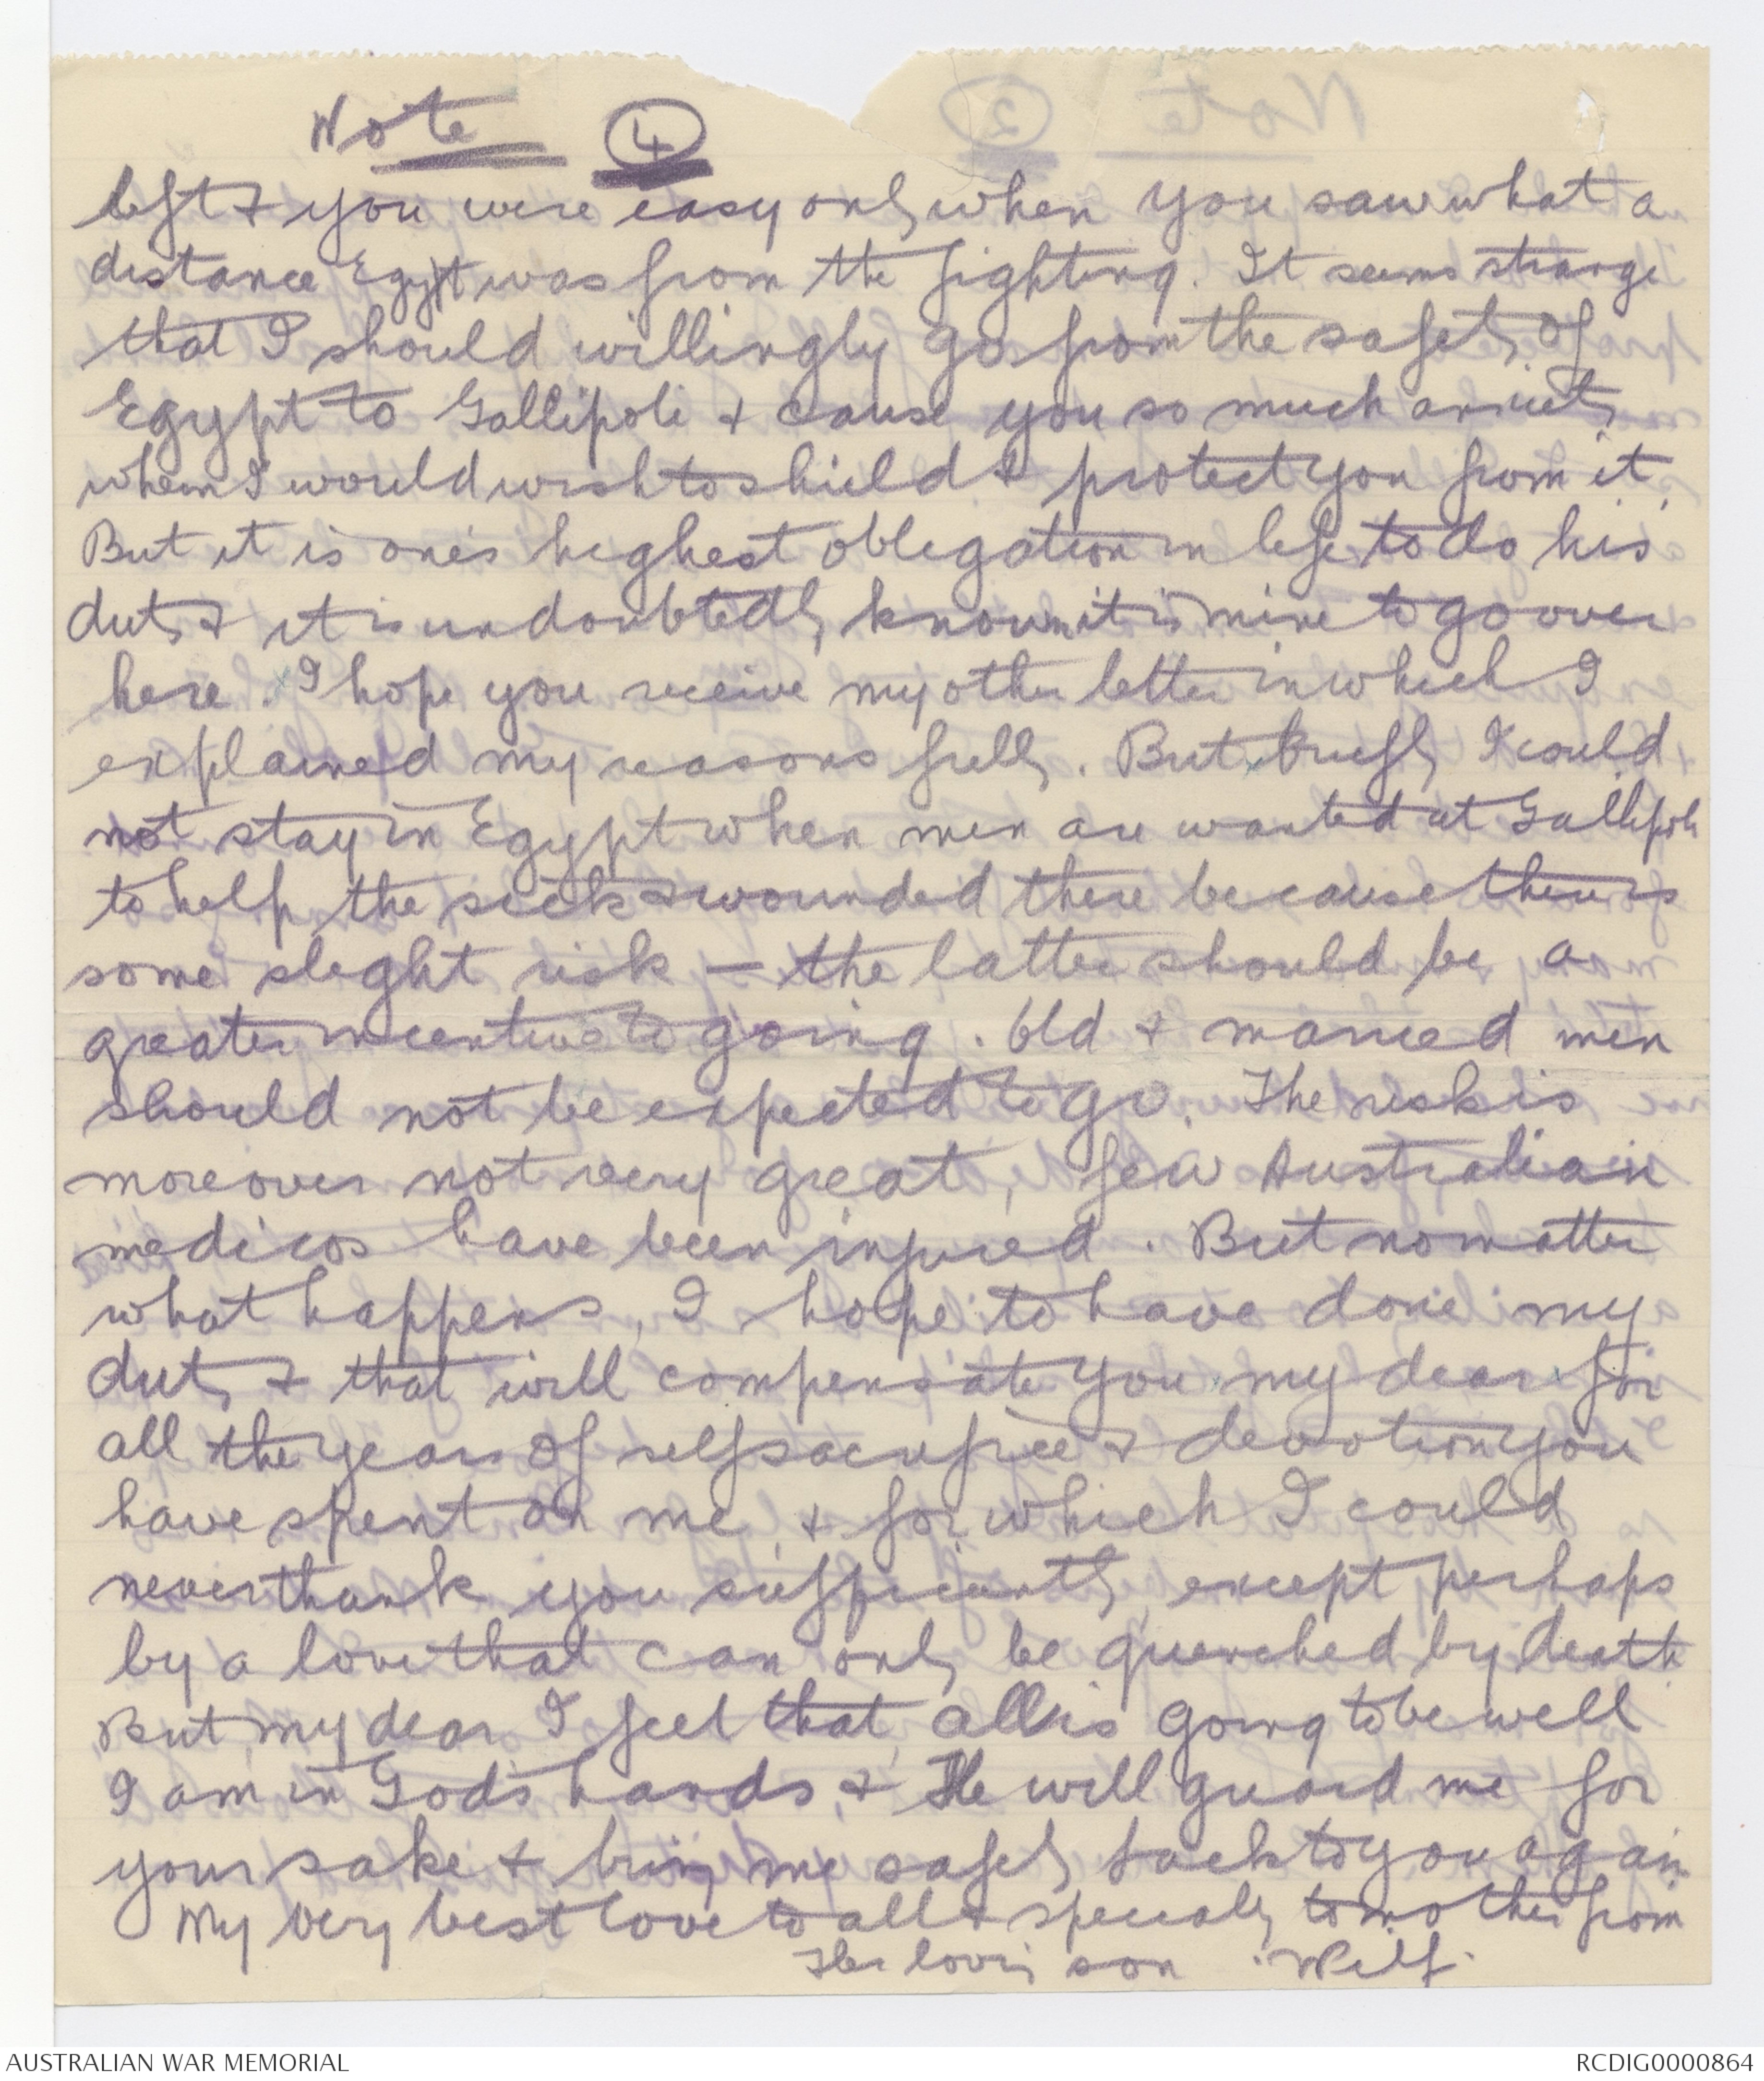 Note 4
left & you were easy only when you saw what a
distance Egypt was from the fighting. It seems strange
that I should willingly go from the safety of
Egypt to Gallipoli & cause you so much anxiety
when I would wish to shield & protect you from it.
But it is one's highest obligation in life to do his
duty & it is undoubtedly known it is mine to go over
here. I hope you receive my other letter in which I
explained my reasons fully. But, briefly I could
not stay in Egypt when men are wanted at Gallipoli
to help the sick & wounded there because there is
some slight risk — the latter should be a
greater incentive to going. Old & married men
should not be expected to go. The risk is
moreover not very great, few Australian
medicos have been injured. But no matter
what happens, I hope to have done my
duty & that will compensate you my dear for
all the years of self sacrifice & devotion you
have spent on me, & for which I could
never thank you sufficiently, except perhaps
by a love that can only be quenched by death.
But, my dear I feel that, all is going to be well
I am in God's hands & He will guard me for
your sake & bring me safely back to you again
My very best love to all & specially to mother from
Her lovin son Wilf.
AUSTRALIAN WAR MEMORIAL
RCDIG0000864